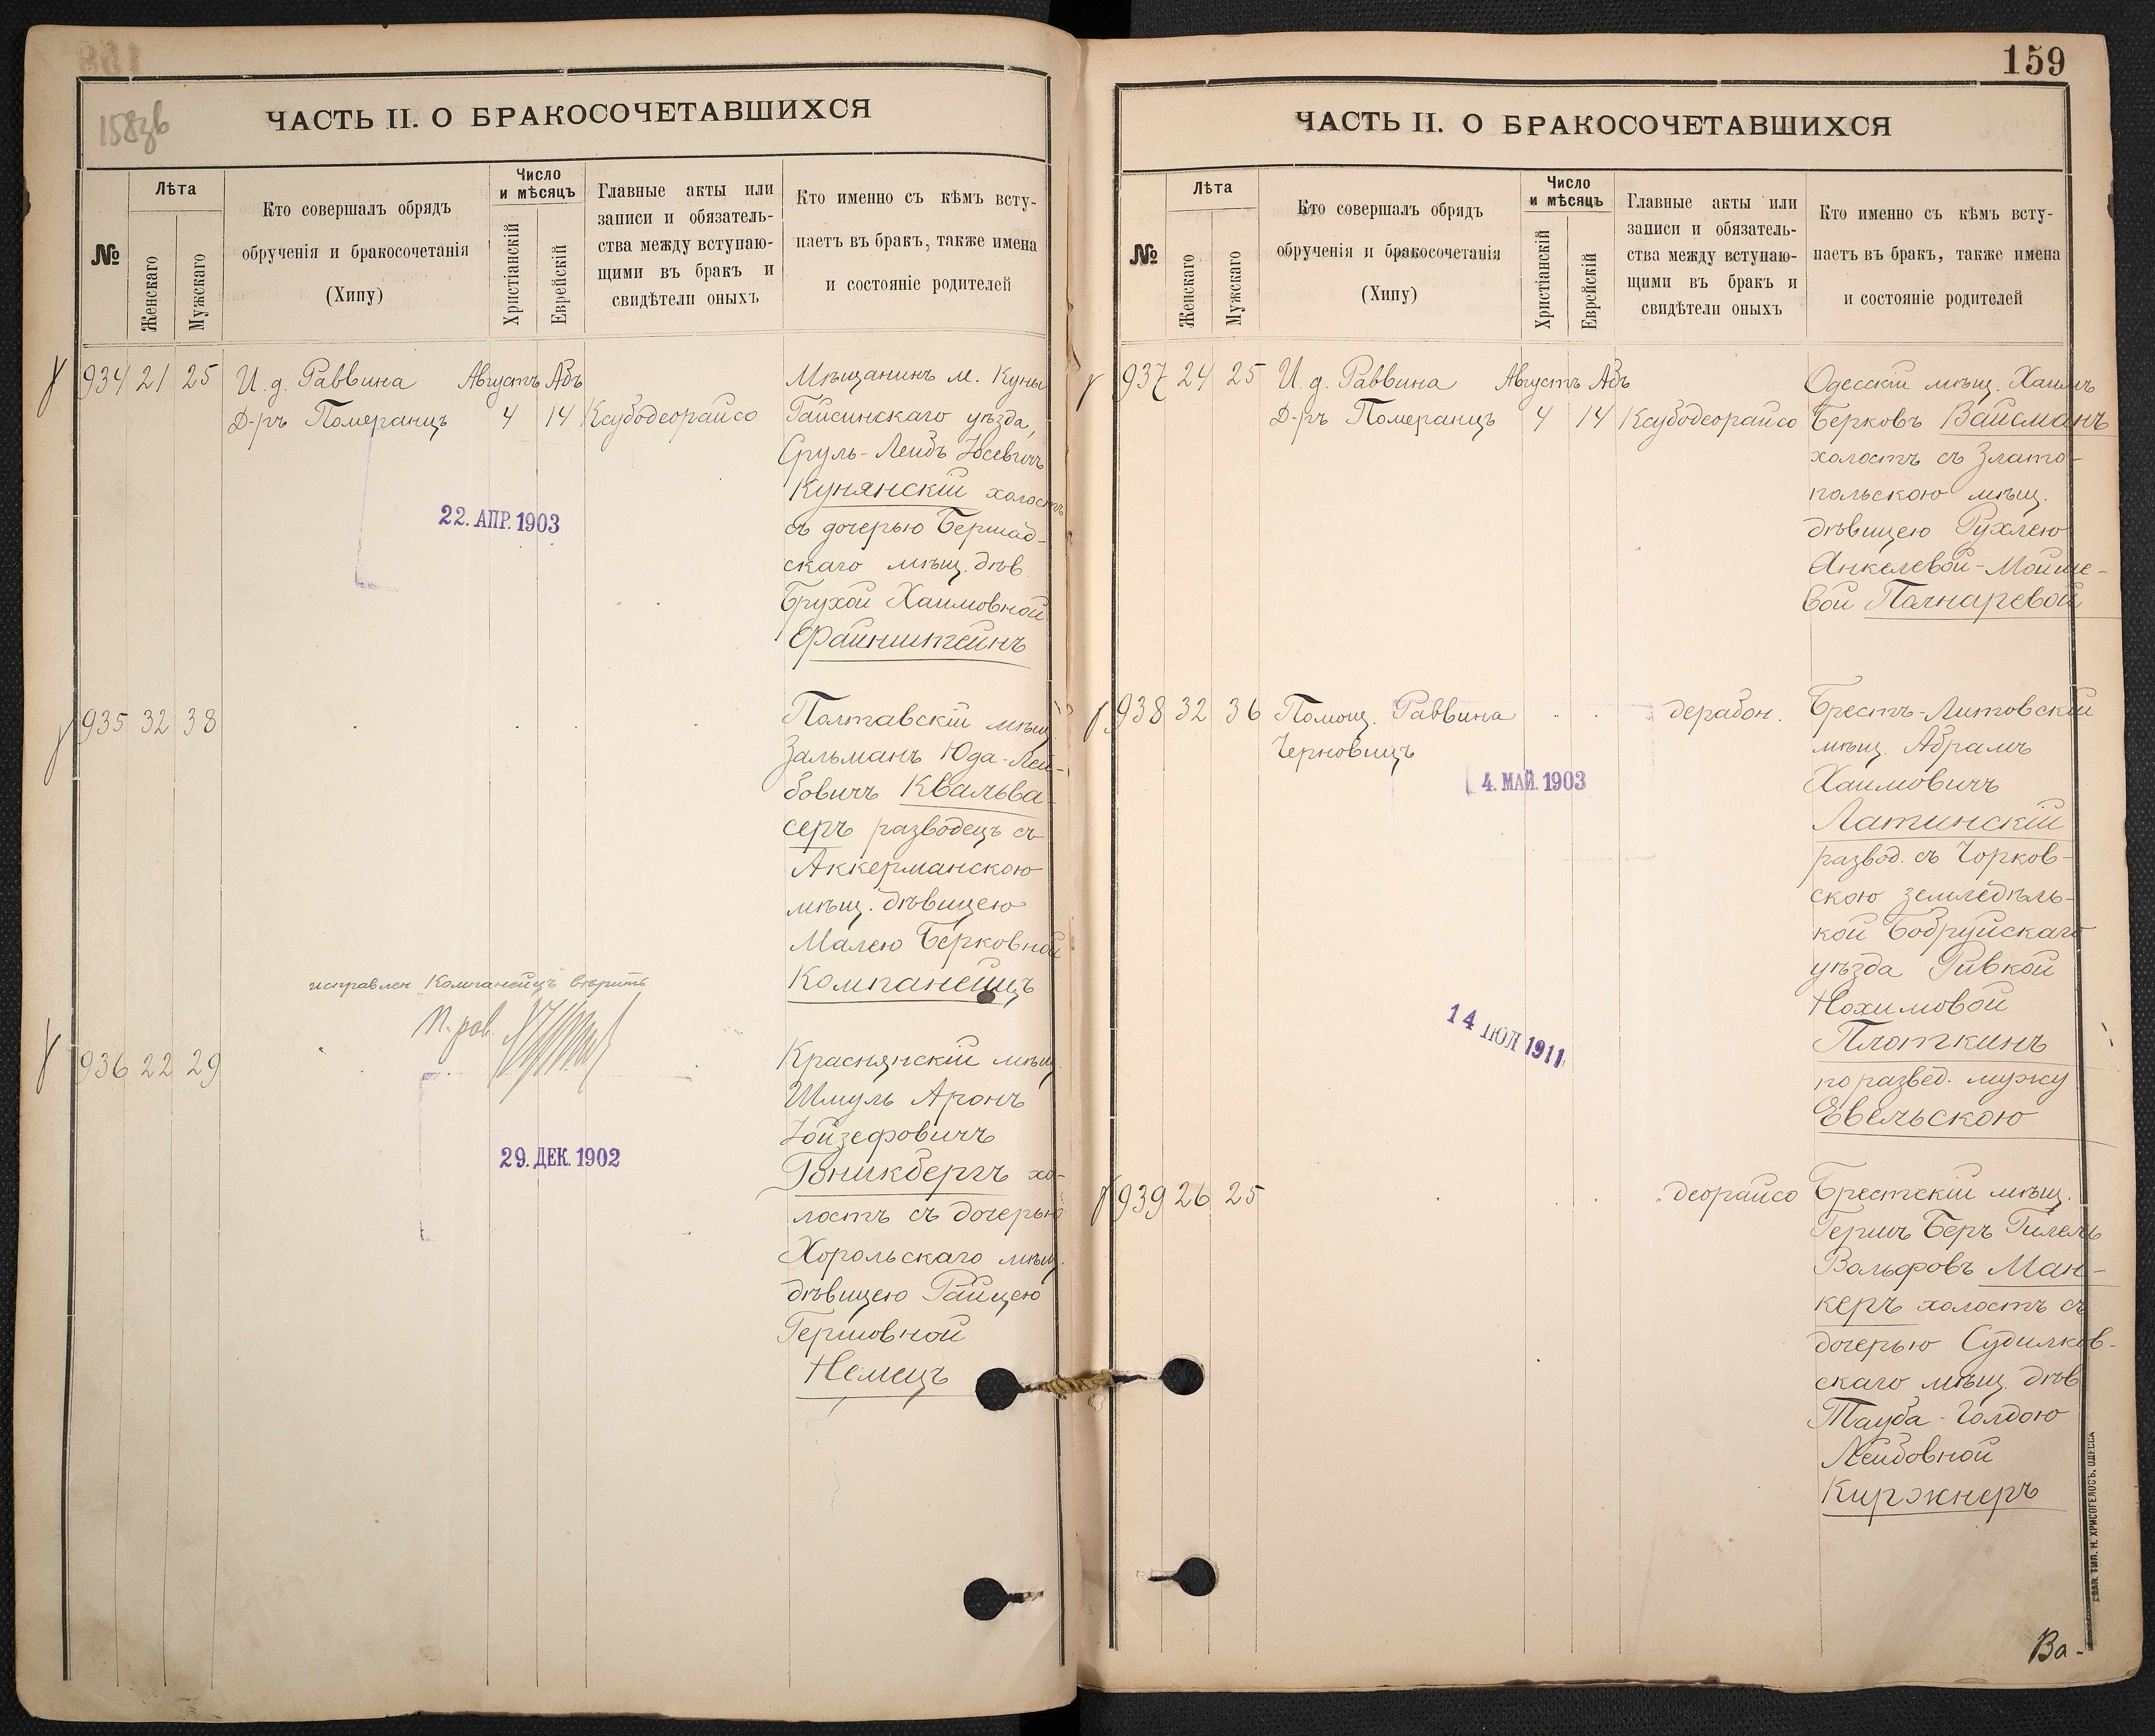 158зв
ЧАСТЬ II. О БРАКОСОЧЕТАВШИХСЯ
№
Лѣта
Женскаго
Мужскаго
Кто совершалъ обрядъ
обрученія и бракосочетанія
(Хипу)
Число
и мѣсяцъ
Христіанскій
Еврейскій
Главные акты или
записи и обязатель-
ства между вступаю-
щими въ бракъ и
свидѣтели оныхъ
Кто именно съ кѣмъ всту-
паетъ въ бракъ, также имена
и состояніе родителей
934 21 25 И. д. Раввина Августъ Абъ
Д-ръ Померанцъ 4 14 Ксубодеорайсо
Мѣщанинъ м. Куны
Гайсинскаго уѣзда,
Сруль-Лейбъ Іосевичъ
Кунянскій холостъ
съ дочерью Бершад-
скаго мѣщ. дѣв.
Брухой Хаимовной
Файнштейнъ
22. АПР. 1903
935 32 38
Полтавскій мѣщ.
Зальманъ Юда-Лей-
бовичъ Квальва-
серъ разводецъ съ
Аккерманскою
мѣщ. дѣвицею
Малею Берковной
Компанеецъ
исправлен Компанейцъ вѣрить
П. рав.
936 22 29
Краснянскій мѣщ.
Шмуль Аронъ
Іойзефовичъ
Гоникбергъ хо-
лостъ съ дочерью
Хорольскаго мѣщ.
дѣвицею Райцею
Гершовной
Немецъ
29. ДЕК. 1902
159
ЧАСТЬ II. О БРАКОСОЧЕТАВШИХСЯ
№
Лѣта
Женскаго
Мужскаго
Кто совершалъ обрядъ
обрученія и бракосочетанія
(Хипу)
Число
и мѣсяцъ
Христіанскій
Еврейскій
Главные акты или
записи и обязатель-
ства между вступаю-
щими въ бракъ и
свидѣтели оныхъ
Кто именно съ кѣмъ всту-
паетъ въ бракъ, также имена
и состояніе родителей
937 24 25 И. д. Раввина Августъ Абъ
Д-ръ Померанцъ 4 14 Ксубодеорайсо
Одесскій мѣщ. Хаимъ
Берковъ Вайсманъ
холостъ съ Злато-
польскою мѣщ.
дѣвицею Рухлею
Янкелевой-Мойше-
вой Полнаревой
938 32 36 Помощ. Раввина дерабон.
Черновицъ
4. МАЙ. 1903
Брестъ-Литовскій
мѣщ. Абрамъ
Хаимовичъ
Латинскій
развод. съ Чорков-
скою земледѣль-
кой Бобруйскаго
уѣзда Ривкой
Нохимовой
Плоткинъ
по развед. мужу
Евельскою
14 ІЮЛ 1911
939 26 25 деорайсо
Брестскій мѣщ.
Гершъ Беръ Гилель
Вольфовъ Ман-
керъ холостъ съ
дочерью Судилков-
скаго мѣщ. дѣв.
Тауба-Голдою
Лейбовной
Киржнеръ
ТИП. Н. ХРИСОГЕЛОСЪ, ОДЕССА
Ва-